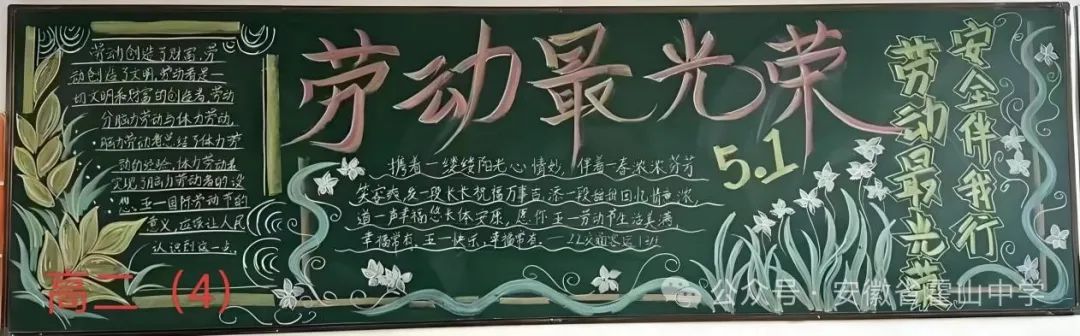 劳动创造了财富,劳
动创造了文明,劳动者是一
切文明和财富的创造者,劳动
分脑力劳动与体力劳动,
脑力劳动者总结了体力劳
动的经验,体力劳动者
实现了脑力劳动者的设
想,五一国际劳动节的
意义,应该让人民
认识到这一点
劳动最光荣
5.1
携着一缕缕阳光心情妙,伴着一春浓浓芬芳
笑容爽,发一段长长祝福万事吉,添一段甜甜回忆情意浓,
道一声幸福您长体安康,愿你五一劳动节生活美满,
幸福常有,五一快乐,幸福常有.
劳动最光荣
安全伴我行
高二(4)
公众号:安徽省霍山中学